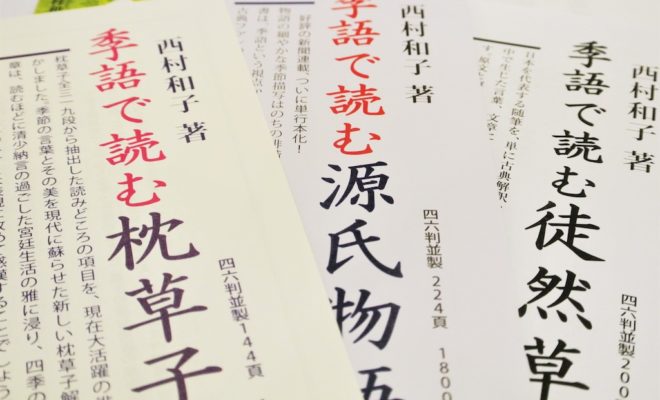 西村和子 著
季語で読む枕草子
四六判並製144頁
枕草子全三一九段から抽出した読みどころの項目を、現在大活躍の
かしました。季節の言葉とその美を現代に蘇らせた新しい枕草子解
章は、読むほどに清少納言の過ごした宮廷生活の雅に浸り、四季の
改めて感嘆することでしょう
西村和子 著
季語で読む源氏物語
四六判並製 224頁 1800
好評の新聞連載、ついに単行本化！
物語の細やかな季節描写はのちの俳諧
書は、季語という視点
古典ファン
西村和子 著
季語で読む徒然草
四六判並製200
日本を代表する随筆を、単に古典解釈
中で生じた言葉、文章
す。原文